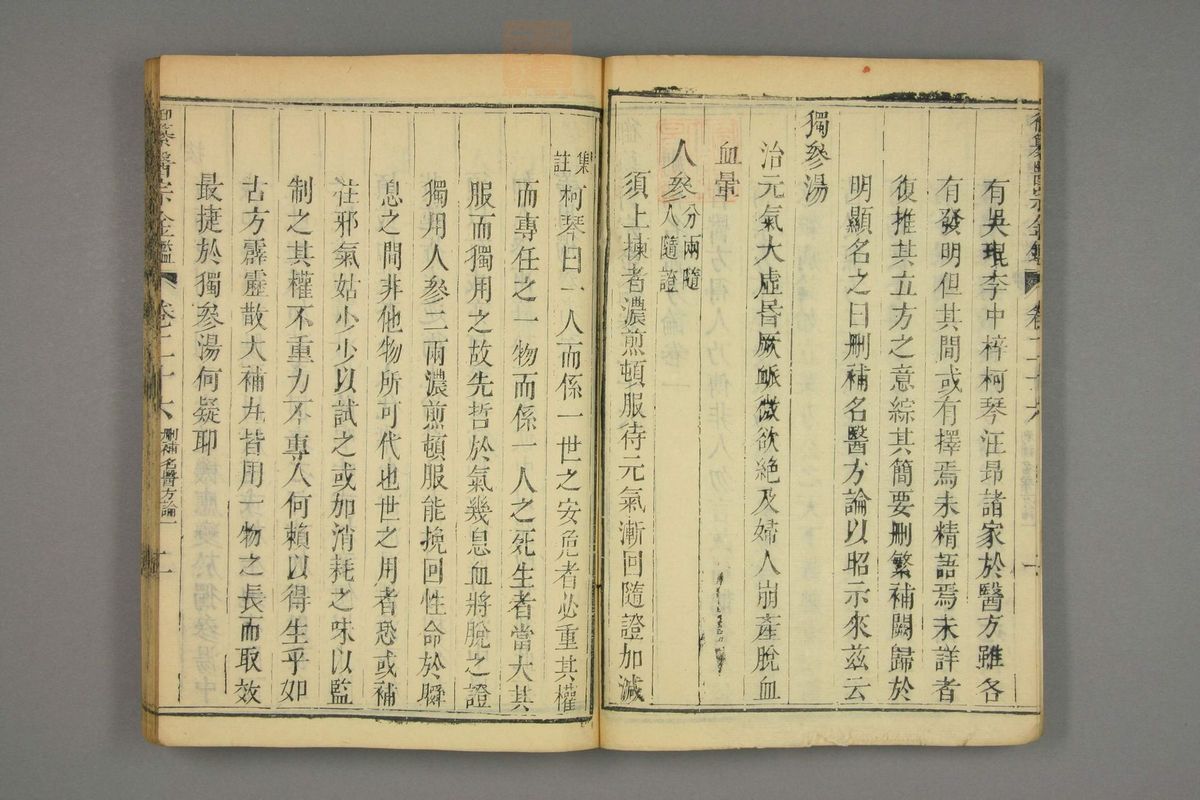 有吳琨李中梓柯琴汪昂諸家於醫方雖各
有發明但其間或有擇焉未精語焉未詳者
復推其立方之意綜其簡要删繁補闕歸於
明顯名之曰删補名醫方論以昭示來兹云
獨參湯
治元氣大虛昏厥脈微欲絶及婦人崩產脫血
血暈
人參分兩隨人隨證
須上揀者濃煎頓服待元氣漸回隨證加減
集註柯琴曰一人而係一世之安危者必重其權
而專任之一物而係一人之死生者當大其
服而獨用之故先哲於氣幾息血將脫之證
獨用人參二兩濃煎頓服能挽回性命於瞬
息之間非他物所可代也世之用者恐或補
住邪氣姑少少以試之或加消耗之味以監
制之其權不重力不專人何賴以得生乎如
古方霹靂散大補丸皆用一物之長而取效
最捷於獨參湯何疑耶
御纂醫宗金鑑 卷二十六 删補名醫方論一 二